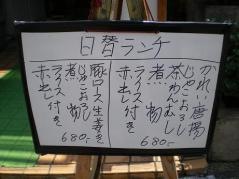 日替ランチ
かれい唐揚
じゃこおろし
茶わんむし
煮物
ライス付き
赤出し
680.-
豚ロース生姜焼
じゃこおろし
煮物
ライス付き
赤出し
680.-